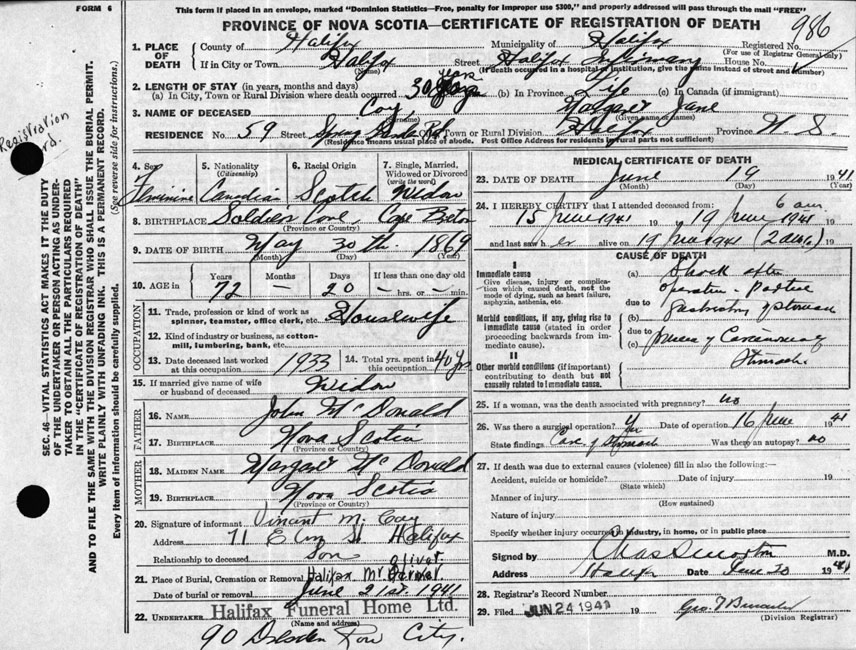 FORM 6
This form if placed in an envelope, marked "Dominion Statistics—Free, penalty for improper use $300," and properly addressed will pass through the mail "FREE"
PROVINCE OF NOVA SCOTIA—CERTIFICATE OF REGISTRATION OF DEATH
986
Registration
SEC. 46—VITAL STATISTICS ACT MAKES IT THE DUTY
OF THE UNDERTAKER OR PERSON ACTING AS UNDERTAKER TO OBTAIN ALL THE PARTICULARS REQUIRED
IN THE "CERTIFICATE OF REGISTRATION OF DEATH"
AND TO FILE THE SAME WITH THE DIVISION REGISTRAR WHO SHALL ISSUE THE BURIAL PERMIT.
WRITE PLAINLY WITH UNFADING INK. THIS IS A PERMANENT RECORD.
Every item of information should be carefully supplied. (See reverse side for instructions.)
1. PLACE OF DEATH County of Halifax Municipality of Halifax Registered No.
(For use of Registrar General only)
If in City or Town Halifax Street Halifax Infirmary House No.
(Name) (If death occurred in a hospital or institution, give the name instead of street and number)
2. LENGTH OF STAY (in years, months and days)
(a) In City, Town or Rural Division where death occurred 30 years (b) In Province Life (c) In Canada (if immigrant)
3. NAME OF DECEASED Coy Margaret Jane
(Surname) (Given name or names)
RESIDENCE No. 59 Street Spring Garden Rd City, Town or Rural Division Halifax Province N. S.
(Residence means usual place of abode. Post Office Address for residents in rural parts not sufficient)
4. Sex Feminine
5. Nationality (Citizenship) Canadian
6. Racial Origin Scotch
7. Single, Married, Widowed or Divorced (write the word) Widow
8. BIRTHPLACE Soldier's Cove, Cape Breton
(Province or Country)
9. DATE OF BIRTH May 30th. 1869
(Month) (Day) (Year)
10. AGE in Years 72 Months — Days 20 If less than one day — hrs. or — min.
OCCUPATION
11. Trade, profession or kind of work as spinner, teamster, office clerk, etc. Housewife
12. Kind of industry or business, as cotton-mill, lumbering, bank, etc.
13. Date deceased last worked at this occupation 1933 14. Total yrs. spent in this occupation 40 yrs
15. If married give name of wife or husband of deceased Widow
FATHER
16. NAME John McDonald
17. BIRTHPLACE Nova Scotia
(Province or Country)
MOTHER
18. MAIDEN NAME Margaret McDonald
19. BIRTHPLACE Nova Scotia
(Province or Country)
20. Signature of informant Vincent M. Coy
Address 71 Elm St Halifax
Relationship to deceased Son
21. Place of Burial, Cremation or Removal Halifax Mt. Olivet
Date of burial or removal June 21st. 1941
22. UNDERTAKER Halifax Funeral Home Ltd.
(Name and address)
90 Dresden Row City.
MEDICAL CERTIFICATE OF DEATH
23. DATE OF DEATH June 19 1941
(Month) (Day) (Year)
24. I HEREBY CERTIFY that I attended deceased from: 6 am
15 June 1941 to 19 June 1941
and last saw h er alive on 19 June 1941
CAUSE OF DEATH
I
Immediate cause
Give disease, injury or complication which caused death, not the mode of dying, such as heart failure, asphyxia, asthenia, etc.
(a) Shock after operation - Partial
due to
Morbid conditions, if any, giving rise to immediate cause (stated in order proceeding backwards from immediate cause).
(b) gastrectomy of stomach
due to
(c) Carcinoma of Stomach.
II
Other morbid conditions (if important) contributing to death but not causally related to immediate cause.
25. If a woman, was the death associated with pregnancy? no
26. Was there a surgical operation? Yes Date of operation 16 June 1941
State findings Carc. of Stomach Was there an autopsy? no
27. If death was due to external causes (violence) fill in also the following:—
Accident, suicide or homicide? Date of injury 19
(State which)
Manner of injury
(How sustained)
Nature of injury
Specify whether injury occurred in industry, in home, or in public place
Signed by Chas S Morton M.D.
Address Halifax Date June 20 1941
28. Registrar's Record Number
29. Filed JUN 24 1941 19
(Division Registrar)